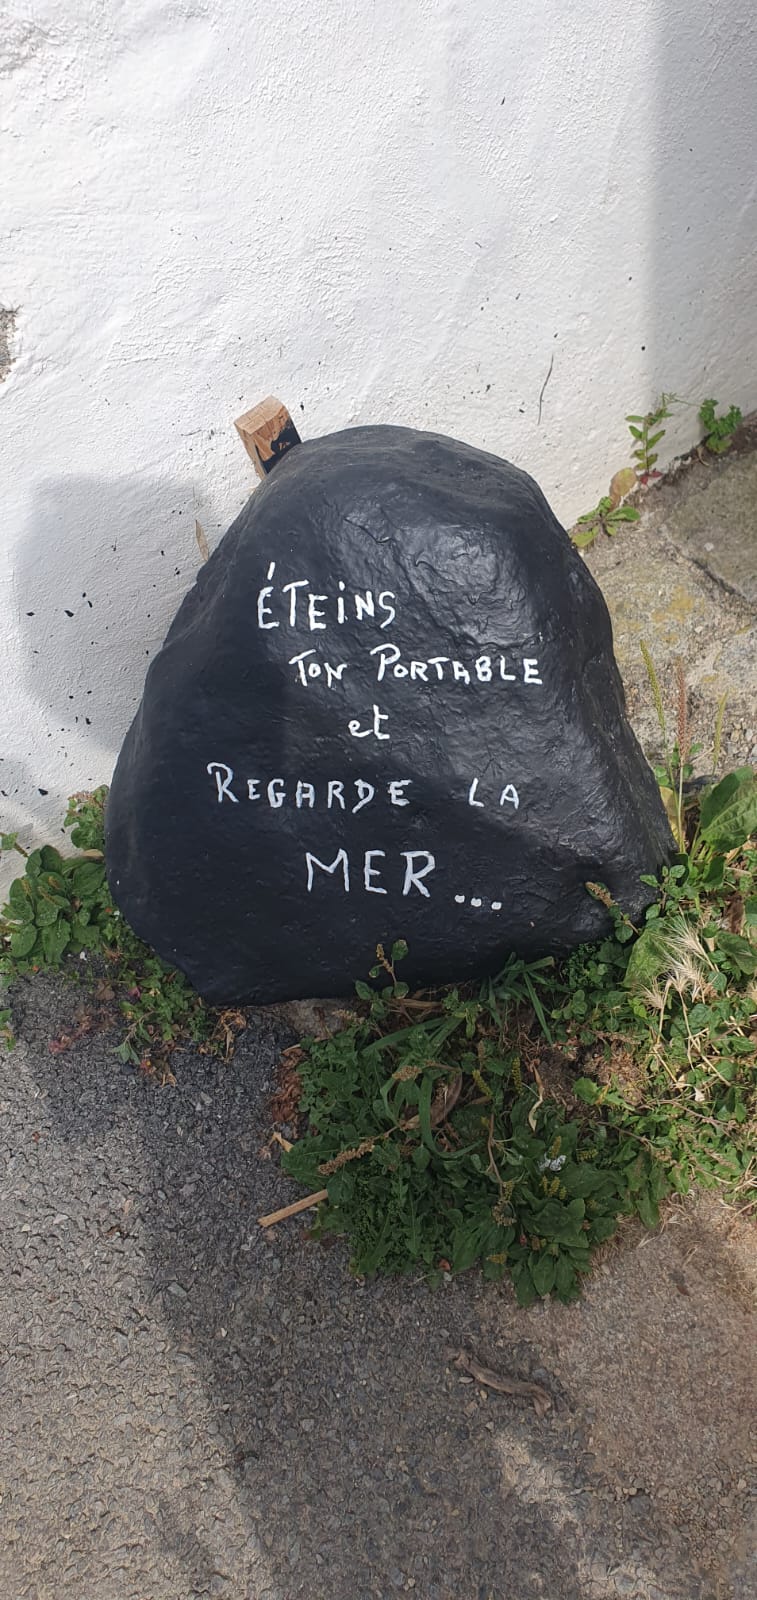 ÉTEINS
TON PORTABLE
et
REGARDE LA
MER...